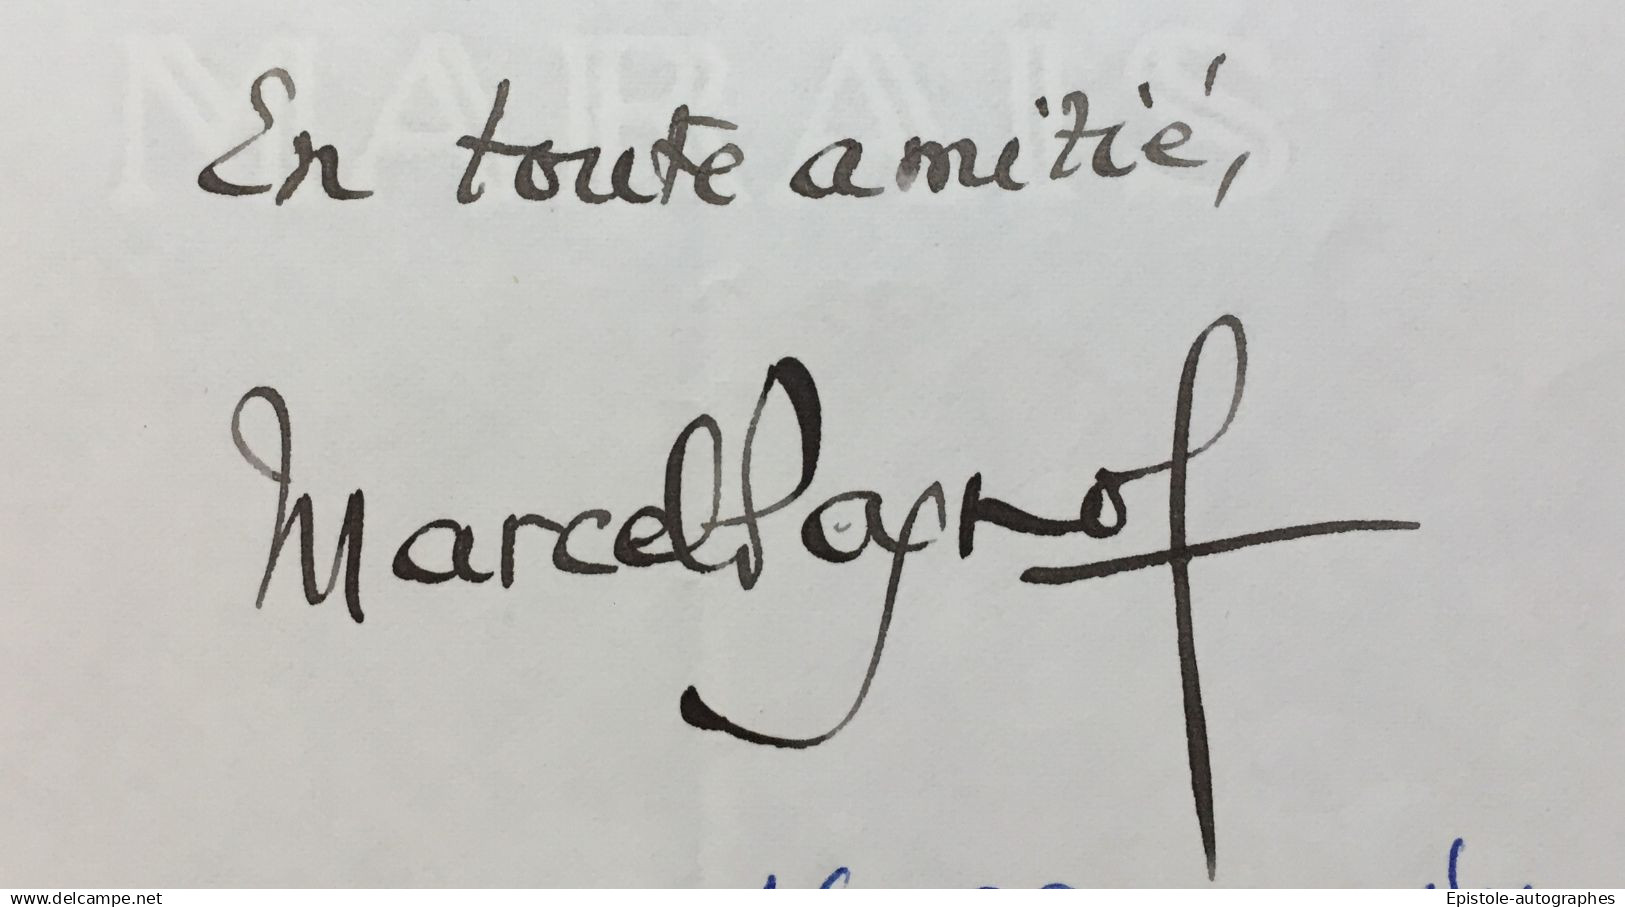 MARAIS
En toute amitié,
Marcel Pagnol
www.delcampe.net
Epistole-autographes